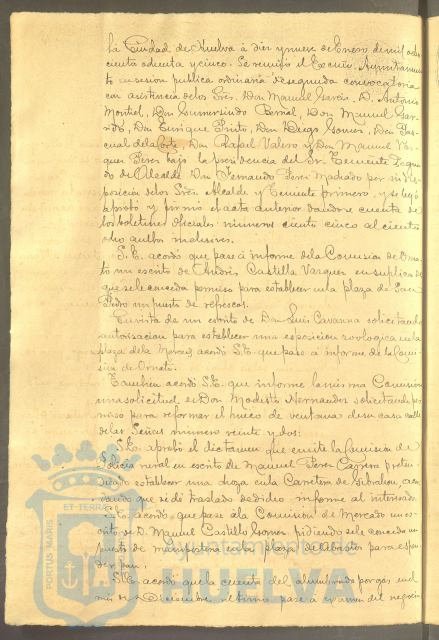 la Ciudad de Huelva á diez y nueve de Enero de mil ocho
cientos ochenta y cinco. Se reunió el Excmo. Ayuntamien
to en sesion publica ordinaria de segunda convocatoria
con asistencia de los Sres. Don Manuel Garcia, D. Antonio
Montiel, Don Gumersindo Bernal, Don Manuel Gar
rido, Don Enrique Prieto, Don Diego Gomez, Don Pas
cual de la Corte, Don Rafael Valero y Don Manuel Vaz
quez Perez bajo la presidencia del Sr. Teniente segun
do de Alcalde Don Fernando Perez Machado por indis
posición de los Sres. Alcalde y Teniente primero, y se leyó
aprobó y firmó el acta anterior dandose cuenta de
los boletines oficiales números ciento cinco al ciento
ocho ambos inclusives.
S.E. acordó que pase á informe de la Comision de Orna
to un escrito de Andres Castilla Vazquez en suplica de
que se le conceda permiso para establecer en la plaza de San
Pedro un puesto de refrescos.
En vista de un escrito de Don Luis Cavanna solicitando
autorizacion para establecer una esposicion zoologica en la
plaza de la Merced, acordó S.E. que pase á informe de la Comi
sion de Ornato.
Tambien acordó S.E. que informe la misma Comision
una solicitud de Don Modesto Hernandez solicitando per
miso para reformar el hueco de ventana de su casa calle
de las Señas numero veinte y dos.
S.E. aprobó el dictamen que emite la Comision de
Policia rural en escrito de Manuel Perez Carrero preten
diendo establecer una choza en la Carretera de Gibraleon, acor
dando que se dé traslado de dicho informe al interesado
S.E. acordó que pase á la Comision de Mercado un es
crito de D. Manuel Castilla Gomez pidiendo se le conceda un
puesto de mamposteria en la plaza de abastos para espen
der pan.
S.E. acordó que la cuenta del alumbrado por gas en el
mes de Diciembre ultimo pase á examen del negocia
PORTUS MARIS
ET TERRAE
Ayuntamiento de
HUELVA